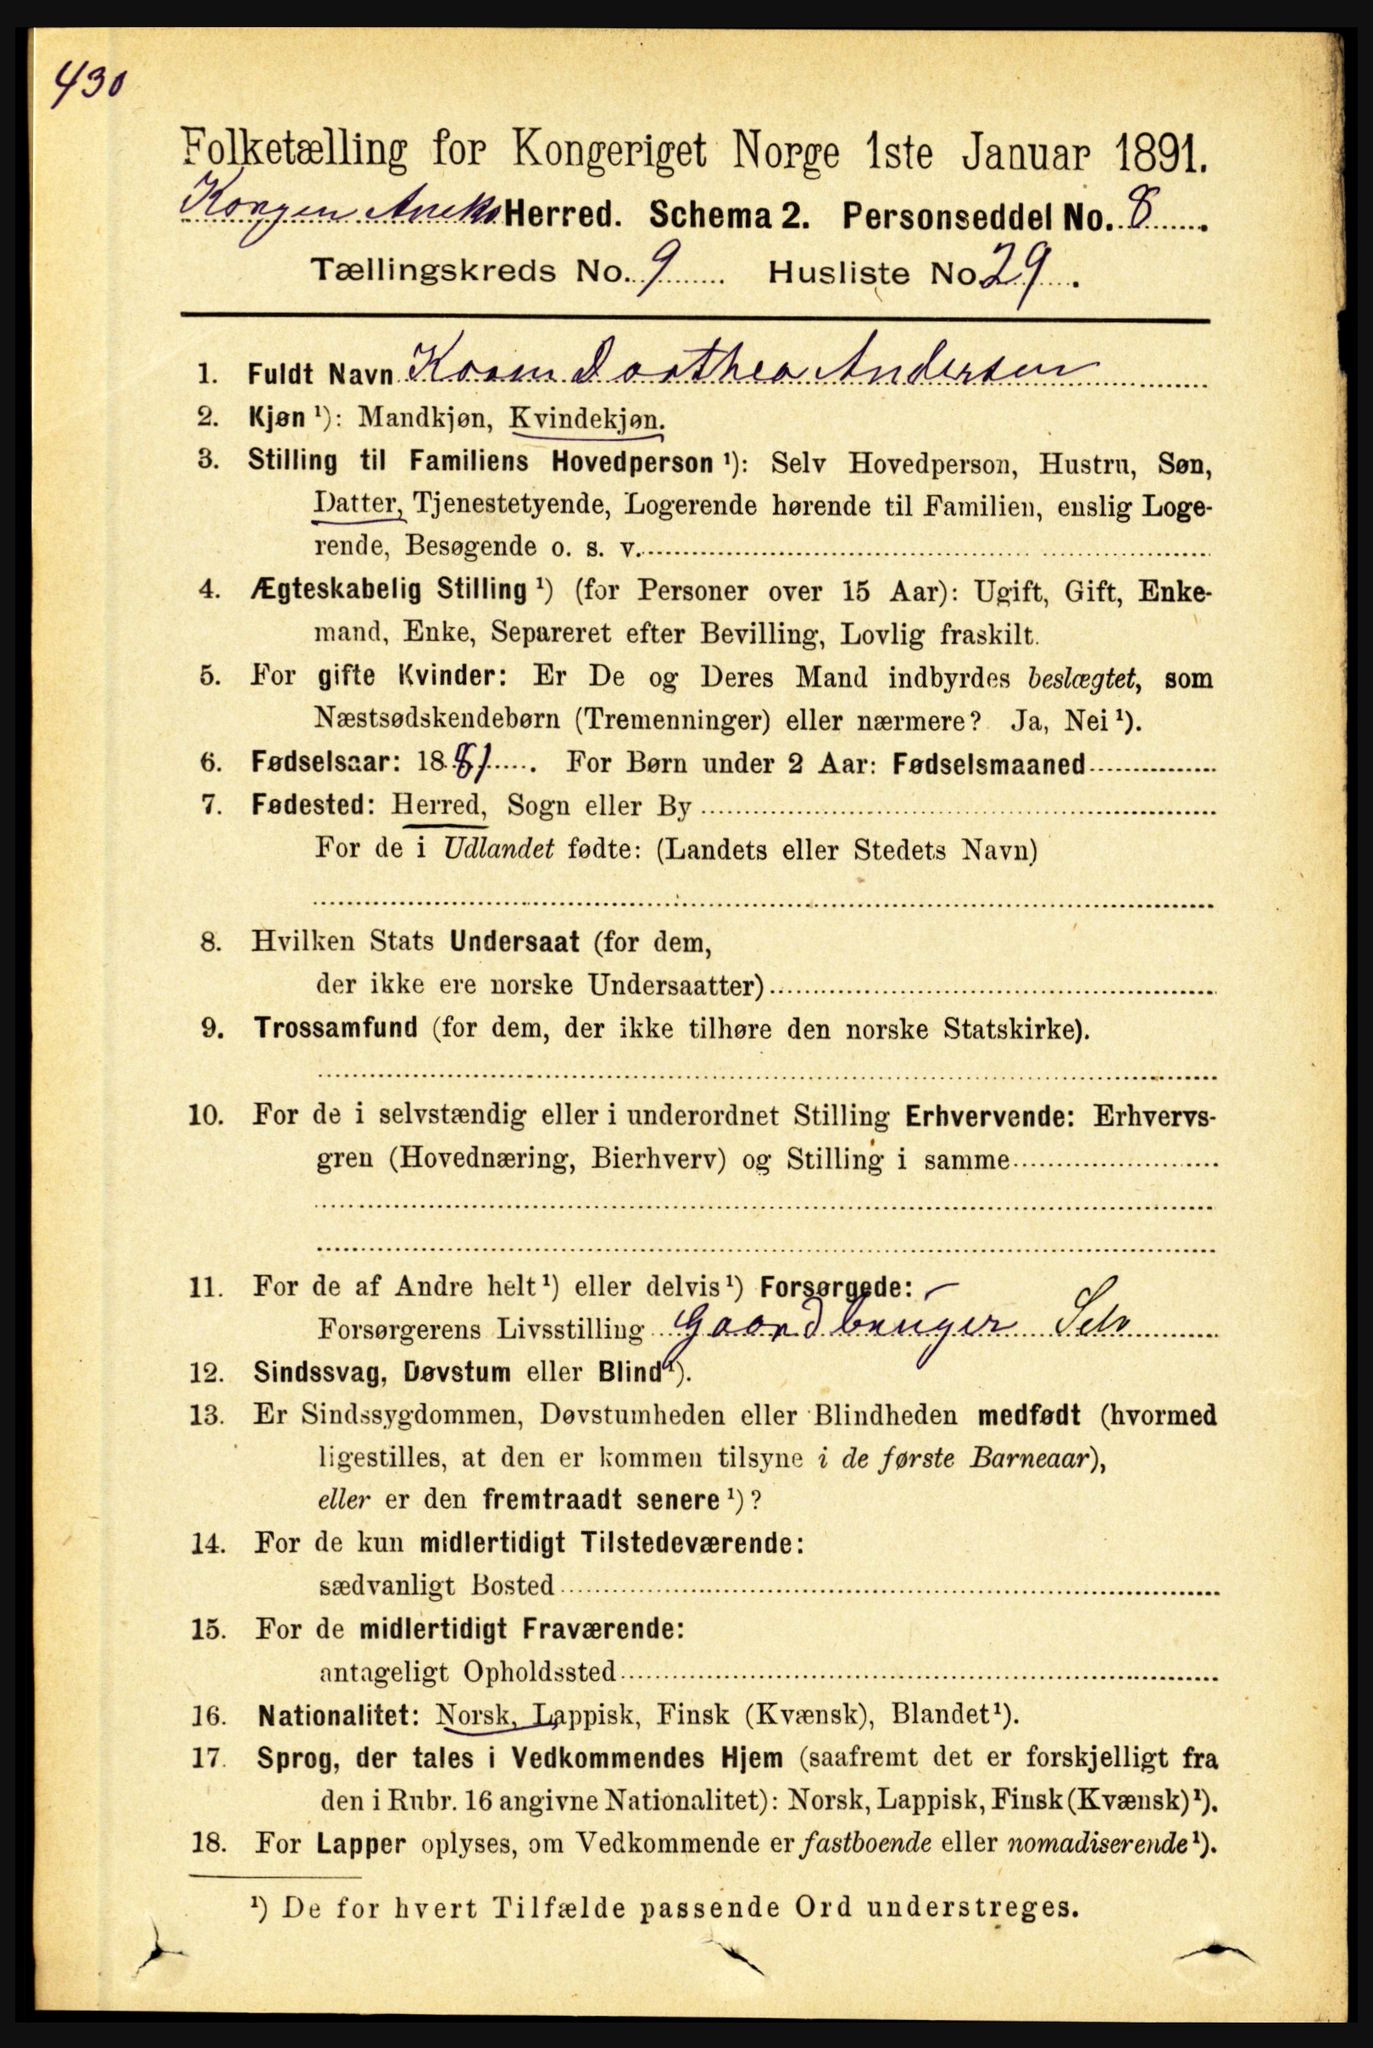 430
Folketælling for Kongeriget Norge 1ste Januar 1891.
Korgen Herred. Schema 2. Personseddel No. 8
Tællingskreds No. 9 Husliste No. 29.
1. Fuldt Navn Karen Dorthea Andersen
2. Kjøn ¹): Mandkjøn, Kvindekjøn.
3. Stilling til Familiens Hovedperson ¹): Selv Hovedperson, Hustru, Søn,
Datter, Tjenestetyende, Logerende hørende til Familien, enslig Loge-
rende, Besøgende o. s. v.
4. Ægteskabelig Stilling ¹) (for Personer over 15 Aar): Ugift, Gift, Enke-
mand, Enke, Separeret efter Bevilling, Lovlig fraskilt.
5. For gifte Kvinder: Er De og Deres Mand indbyrdes beslægtet, som
Næstsødskendebørn (Tremenninger) eller nærmere? Ja, Nei ¹).
6. Fødselsaar: 1881. For Børn under 2 Aar: Fødselsmaaned
7. Fødested: Herred, Sogn eller By
For de i Udlandet fødte: (Landets eller Stedets Navn)
8. Hvilken Stats Undersaat (for dem,
der ikke ere norske Undersaatter)
9. Trossamfund (for dem, der ikke tilhøre den norske Statskirke).
10. For de i selvstændig eller i underordnet Stilling Erhvervende: Erhvervs-
gren (Hovednæring, Bierhverv) og Stilling i samme
11. For de af Andre helt ¹) eller delvis ¹) Forsørgede:
Forsørgerens Livsstilling Gaardbruger Selv
12. Sindssvag, Døvstum eller Blind ¹).
13. Er Sindssygdommen, Døvstumheden eller Blindheden medfødt (hvormed
ligestilles, at den er kommen tilsyne i de første Barneaar),
eller er den fremtraadt senere ¹)?
14. For de kun midlertidigt Tilstedeværende:
sædvanligt Bosted
15. For de midlertidigt Fraværende:
antageligt Opholdssted
16. Nationalitet: Norsk, Lappisk, Finsk (Kvænsk), Blandet ¹).
17. Sprog, der tales i Vedkommendes Hjem (saafremt det er forskjelligt fra
den i Rubr. 16 angivne Nationalitet): Norsk, Lappisk, Finsk (Kvænsk) ¹).
18. For Lapper oplyses, om Vedkommende er fastboende eller nomadiserende ¹).
¹) De for hvert Tilfælde passende Ord understreges.